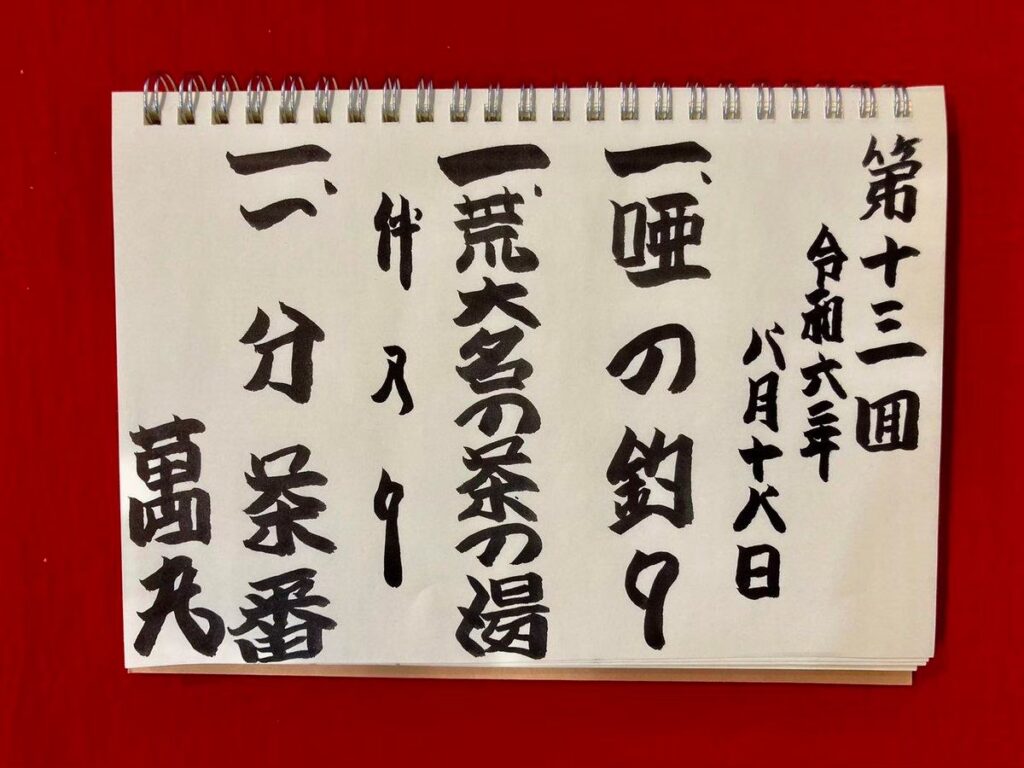 第十三回
令和六年
八月十八日
一、唖の釣り
一、荒大名の茶の湯
仲入り
一、一分茶番
萬丸